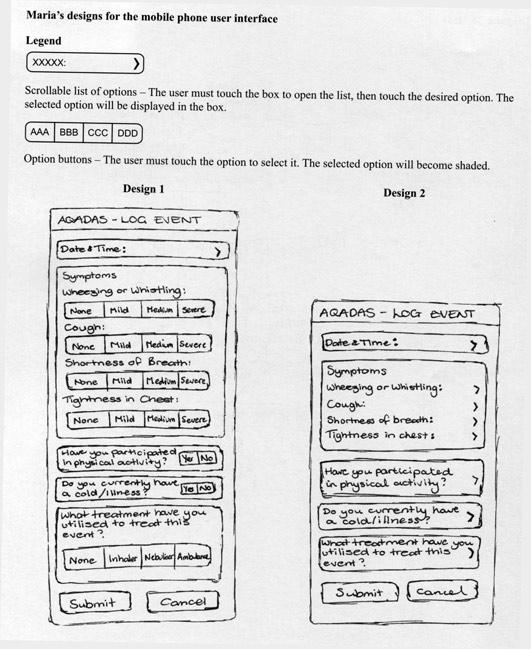 Maria's designs for the mobile phone user interface
Legend
XXXXX:
Scrollable list of options – The user must touch the box to open the list, then touch the desired option. The
selected option will be displayed in the box.
AAA BBB CCC DDD
Option buttons – The user must touch the option to select it. The selected option will become shaded.
Design 1
AQADAS - LOG EVENT
Date & Time:
Symptoms
Wheezing or Whistling:
None Mild Medium Severe
Cough:
None Mild Medium Severe
Shortness of Breath:
None Mild Medium Severe
Tightness in Chest:
None Mild Medium Severe
Have you participated
in physical activity? Yes No
Do you currently have
a cold/illness? Yes No
What treatment have you
utilised to treat this
event?
None Inhaler Nebuliser Ambulance
Submit Cancel
Design 2
AQADAS - LOG EVENT
Date & Time:
Symptoms
Wheezing or Whistling:
Cough:
Shortness of breath:
Tightness in chest:
Have you participated
in physical activity?
Do you currently have
a cold/illness?
What treatment have you
utilised to treat this
event?
Submit Cancel